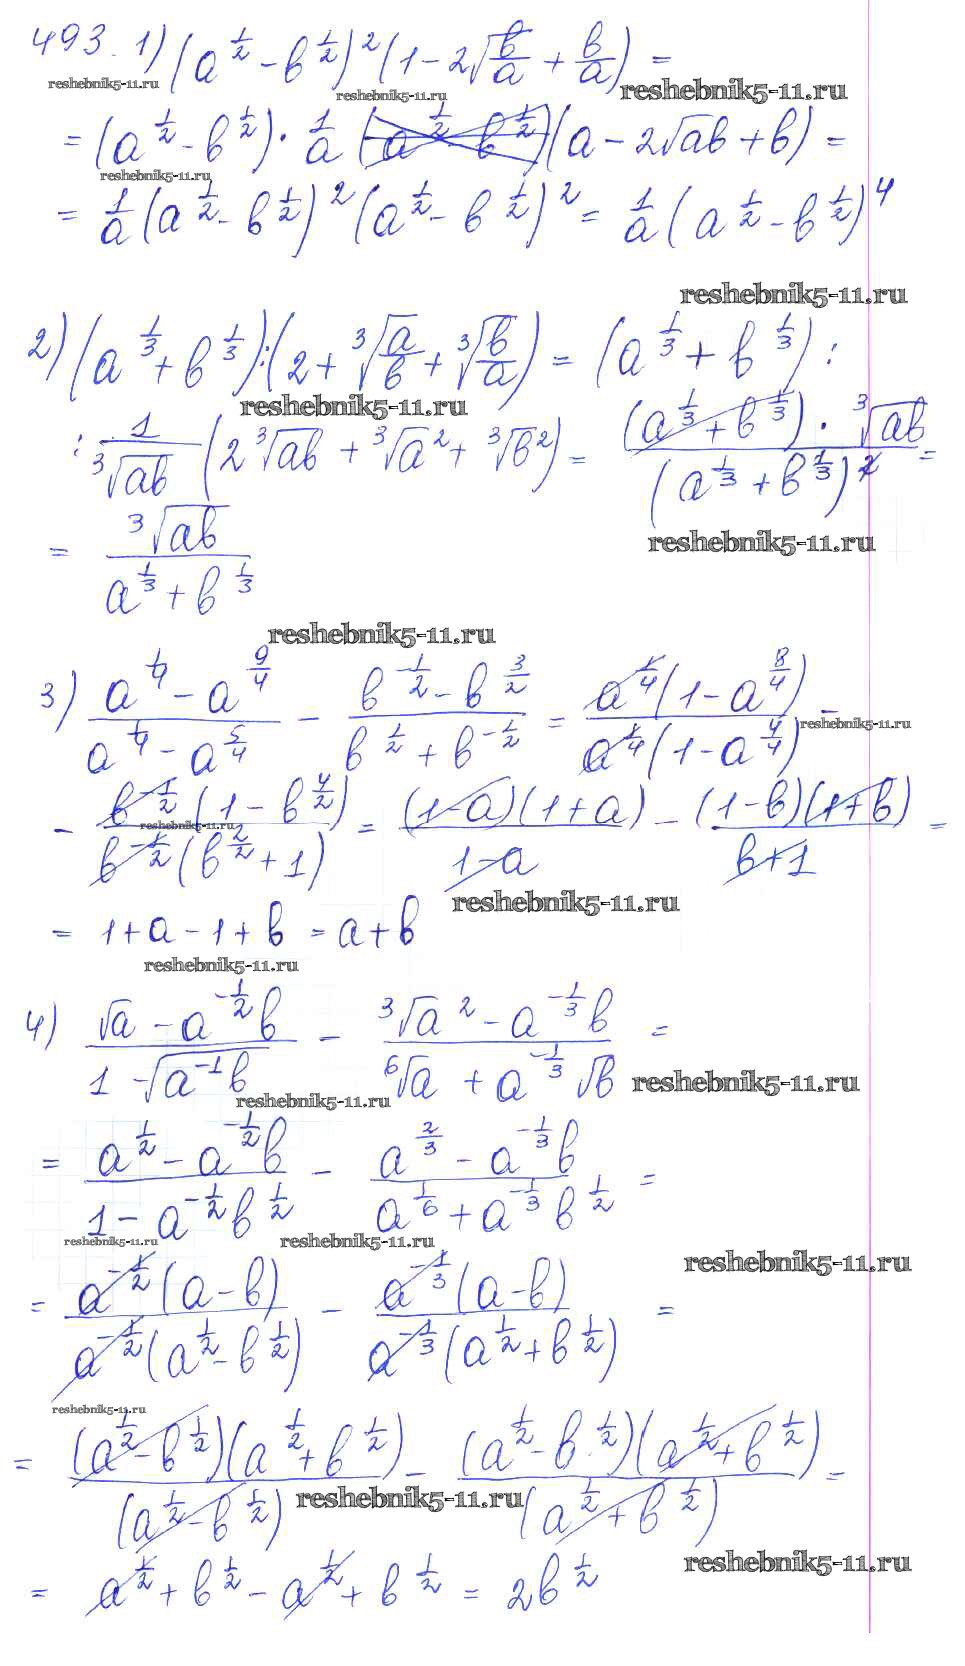 493. 1) (a^(1/2) - b^(1/2))^2 (1 - 2√(b/a) + b/a) =
reshebnik5-11.ru reshebnik5-11.ru reshebnik5-11.ru
= (a^(1/2) - b^(1/2)) · 1/a (a^(1/2) b^(1/2)) (a - 2√ab + b) =
reshebnik5-11.ru
= 1/a (a^(1/2) - b^(1/2))^2 (a^(1/2) - b^(1/2))^2 = 1/a (a^(1/2) - b^(1/2))^4
reshebnik5-11.ru
2) (a^(1/3) + b^(1/3)) : (2 + ∛(a/b) + ∛(b/a)) = (a^(1/3) + b^(1/3)) :
reshebnik5-11.ru
: 1/∛ab (2∛ab + ∛a^2 + ∛b^2) = (a^(1/3) + b^(1/3)) · ∛ab / (a^(1/3) + b^(1/3))^2 =
reshebnik5-11.ru
= ∛ab / (a^(1/3) + b^(1/3))
reshebnik5-11.ru
3) (a^(1/4) - a^(9/4)) / (a^(1/4) - a^(5/4)) - (b^(-1/2) - b^(3/2)) / (b^(1/2) + b^(-1/2)) = a^(1/4) (1 - a^(8/4)) / a^(1/4) (1 - a^(4/4)) -
reshebnik5-11.ru
- b^(-1/2) (1 - b^(4/2)) / b^(-1/2) (b^(2/2) + 1) = (1 - a)(1 + a) / (1 - a) - (1 - b)(1 + b) / (b + 1) =
reshebnik5-11.ru
reshebnik5-11.ru
= 1 + a - 1 + b = a + b
reshebnik5-11.ru
4) (√a - a^(-1/2) b) / (1 - √(a^(-1) b)) - (∛a^2 - a^(-1/3) b) / (⁶√a + a^(-1/3) √b) =
reshebnik5-11.ru
reshebnik5-11.ru
= (a^(1/2) - a^(-1/2) b) / (1 - a^(-1/2) b^(1/2)) - (a^(2/3) - a^(-1/3) b) / (a^(1/6) + a^(-1/3) b^(1/2)) =
reshebnik5-11.ru reshebnik5-11.ru
reshebnik5-11.ru
= a^(-1/2) (a - b) / a^(-1/2) (a^(1/2) - b^(1/2)) - a^(-1/3) (a - b) / a^(-1/3) (a^(1/2) + b^(1/2)) =
reshebnik5-11.ru
= (a^(1/2) - b^(1/2)) (a^(1/2) + b^(1/2)) / (a^(1/2) - b^(1/2)) - (a^(1/2) - b^(1/2)) (a^(1/2) + b^(1/2)) / (a^(1/2) + b^(1/2)) =
reshebnik5-11.ru
reshebnik5-11.ru
= a^(1/2) + b^(1/2) - a^(1/2) + b^(1/2) = 2b^(1/2)